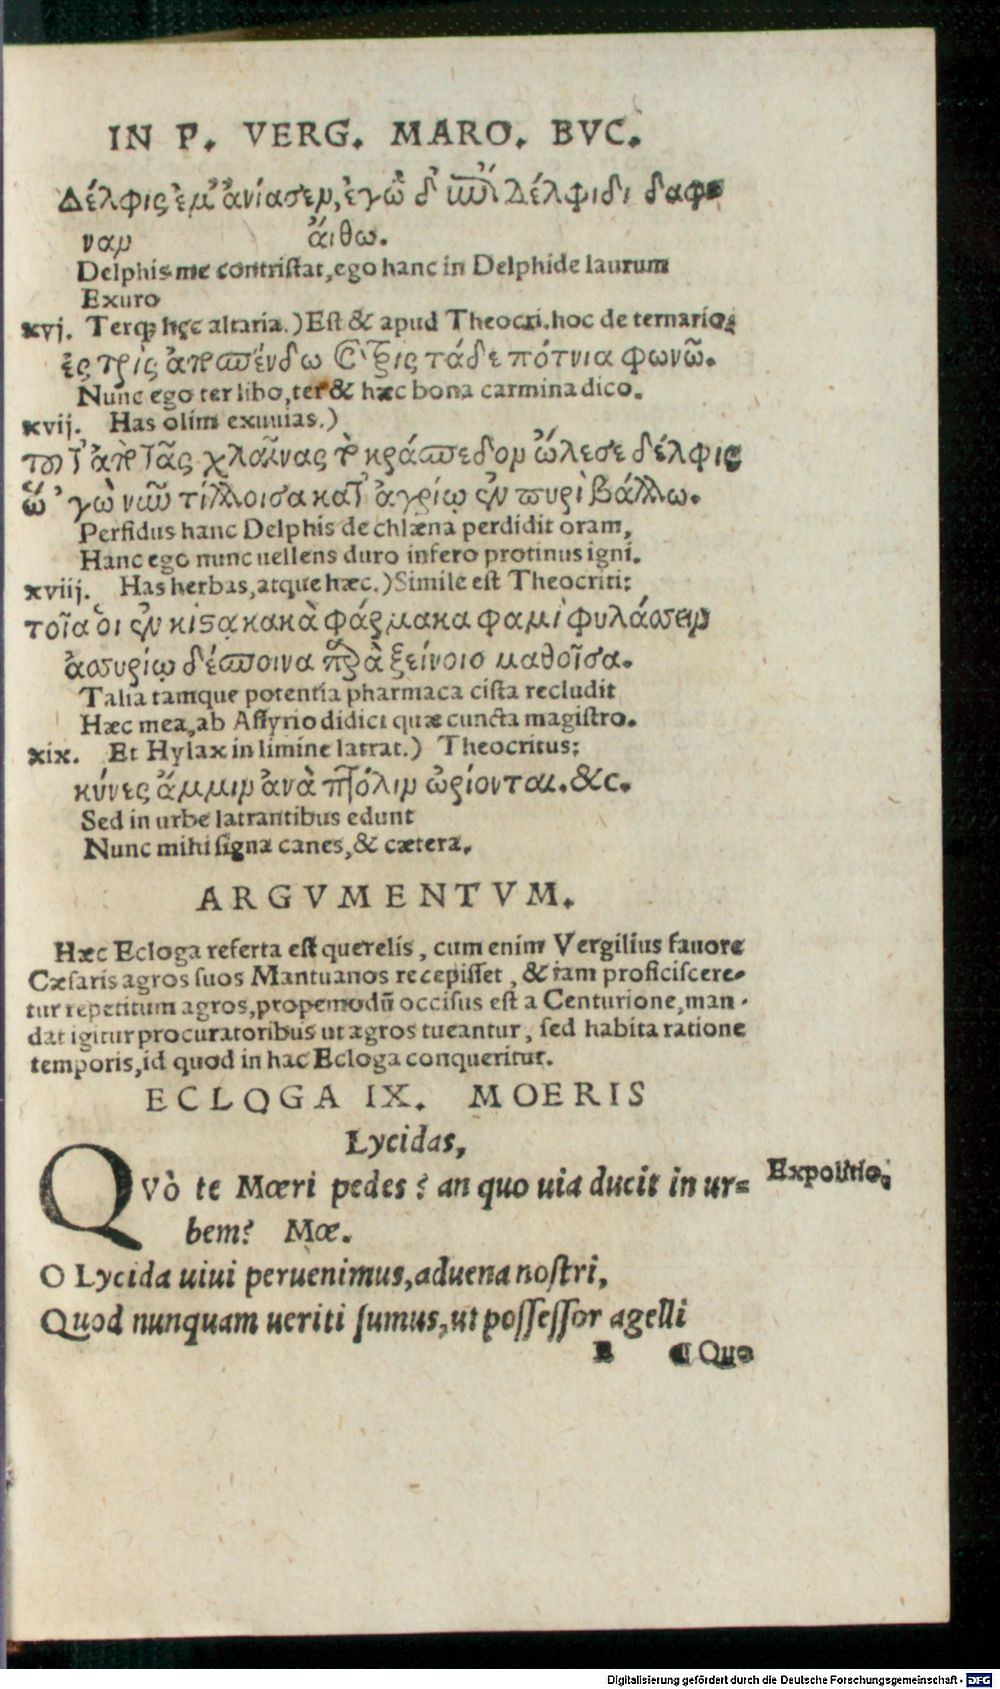 IN P. VERG. MARO. BVC.
Δέλφις ἐμ' ἀνίασεν, ἐγὼ δ' ἐπὶ Δέλφιδι δαφ-
ναν ἄιθω.
Delphis me contristat, ego hanc in Delphide laurum
Exuro
xvj. Terq; hęc altaria.) Est & apud Theocri. hoc de ternario:
ἐς τρὶς ἀποσπένδω καὶ τρὶς τάδε πότνια φωνῶ.
Nunc ego ter libo, ter & hæc bona carmina dico.
xvij. Has olim exuuias.)
τοῦτ' ἀπὸ τᾶς χλαῖνας τὸ κράσπεδον ὤλεσε δέλφις
ὥ 'γὼ νῦν τίλλοισα κατ' ἀγρίῳ ἐν πυρὶ βάλλω.
Perfidus hanc Delphis de chlæna perdidit oram,
Hanc ego nunc uellens duro infero protinus igni.
xviij. Has herbas, atque hæc.) Simile est Theocriti:
τοῖα οἱ ἐν κίστᾳ κακὰ φάρμακα φαμὶ φυλάσσειν
ἀσσυρίῳ δέσποινα παρὰ ξείνοιο μαθοῖσα.
Talia tamque potentia pharmaca cista recludit
Hæc mea, ab Assyrio didici quæ cuncta magistro.
xix. Et Hylax in limine latrat.) Theocritus:
κύνες ἄμμιν ἀνὰ πτόλιν ὠρίονται. &c.
Sed in urbe latrantibus edunt
Nunc mihi signa canes, & cætera.
ARGVMENTVM.
Hæc Ecloga referta est querelis, cum enim Vergilius fauore
Cæsaris agros suos Mantuanos recepisset, & iam proficiscere-
tur repetitum agros, propemodū occisus est a Centurione, man-
dat igitur procuratoribus ut agros tueantur, sed habita ratione
temporis, id quod in hac Ecloga conqueritur.
ECLOGA IX. MOERIS
Lycidas,
QVò te Mœri pedes? an quo uia ducit in ur= Expolitio.
bem? Mœ.
O Lycida uiui peruenimus, aduena nostri,
Quod nunquam ueriti sumus, ut possessor agelli
¶ Quo
Digitalisierung gefördert durch die Deutsche Forschungsgemeinschaft - DFG